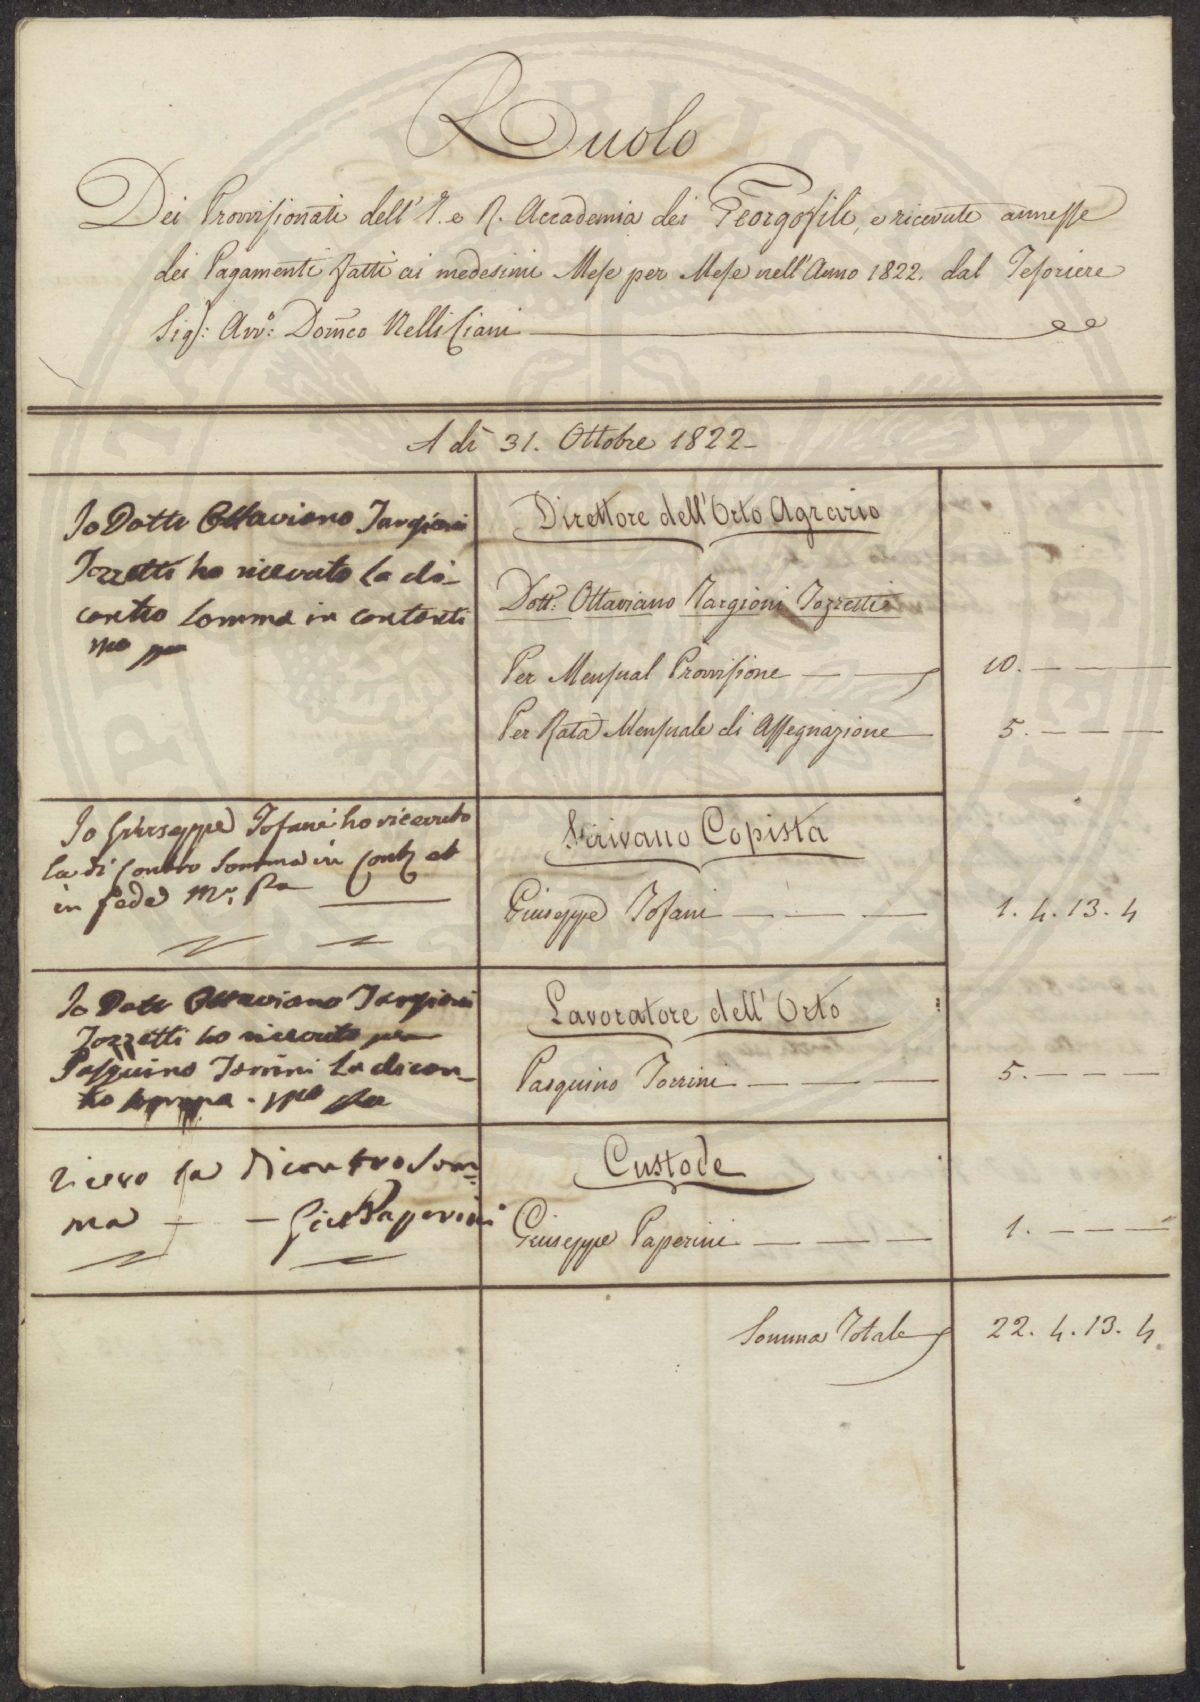 Ruolo
Dei Provvisionati dell' I. e R. Accademia dei Georgofili, e ricevute annesse
dei Pagamenti fatti ai medesimi Mese per Mese nell'Anno 1822. dal Tesoriere
Sig.: Avv.°: Dom̃co Nelli Ciani
A dì 31. Ottobre 1822
Io Dotte Ottaviano Targioni
Tozzetti ho ricevuto la di
contro somma in contanti
mo pa
Direttore dell'Orto Agrario
Dott: Ottaviano Targioni Tozzetti
Per Mensual Provvisione — — 10. — — —
Per Rata Mensuale di Assegnazione — 5. — — —
Io Giuseppe Tofani ho ricevuto
la di contro somma in Conti et
in fede Mr. Pa
Scrivano Copista
Giuseppe Tofani — — — 1. 4. 13. 4
Io Dotte Ottaviano Targioni
Tozzetti ho ricevuto per
Pasquino Torrini la dicon-
tro somma - mo pa
Lavoratore dell'Orto
Pasquino Torrini — — — 5. — — —
ricevo la dicontro som=
ma — — Giu Paperini
Custode
Giuseppe Paperini — — — 1. — — —
Somma Totale 22. 4. 13. 4.